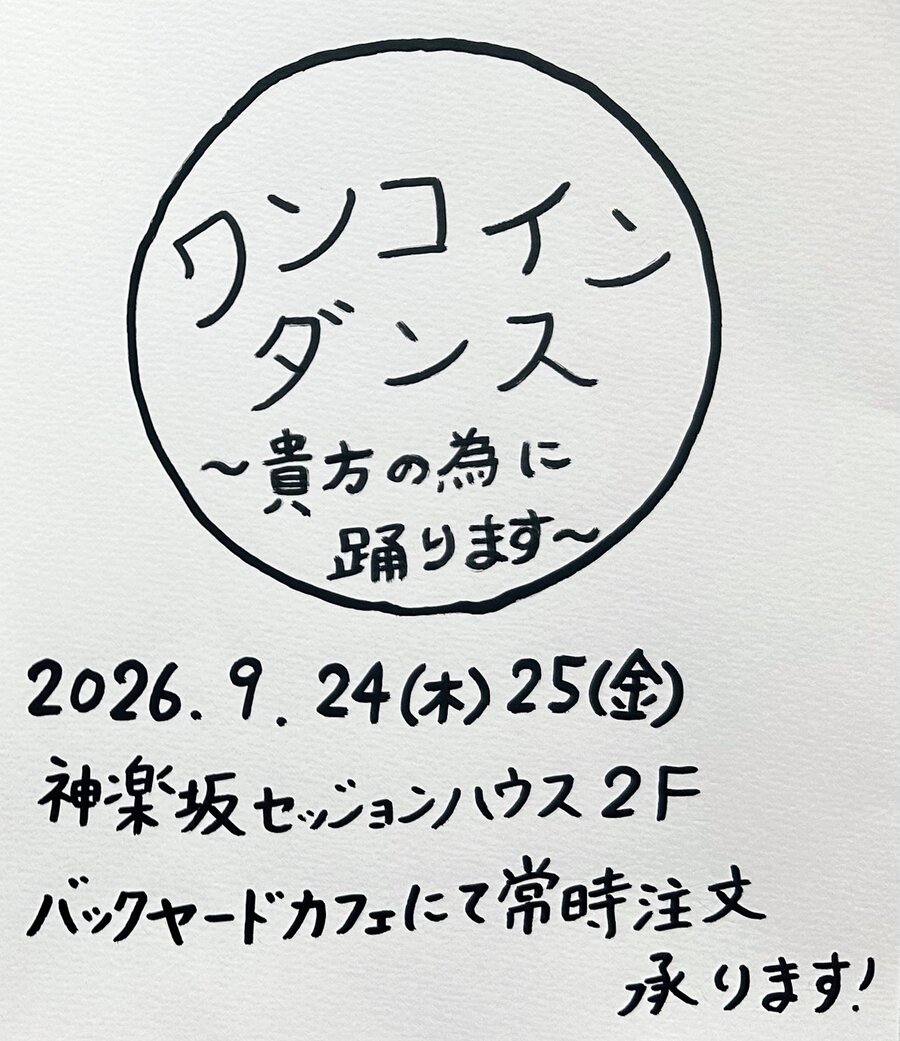 ワンコイン
ダンス
～貴方の為に
踊ります～
2026.9.24(木)25(金)
神楽坂セッションハウス2F
バックヤードカフェにて常時注文
承ります!